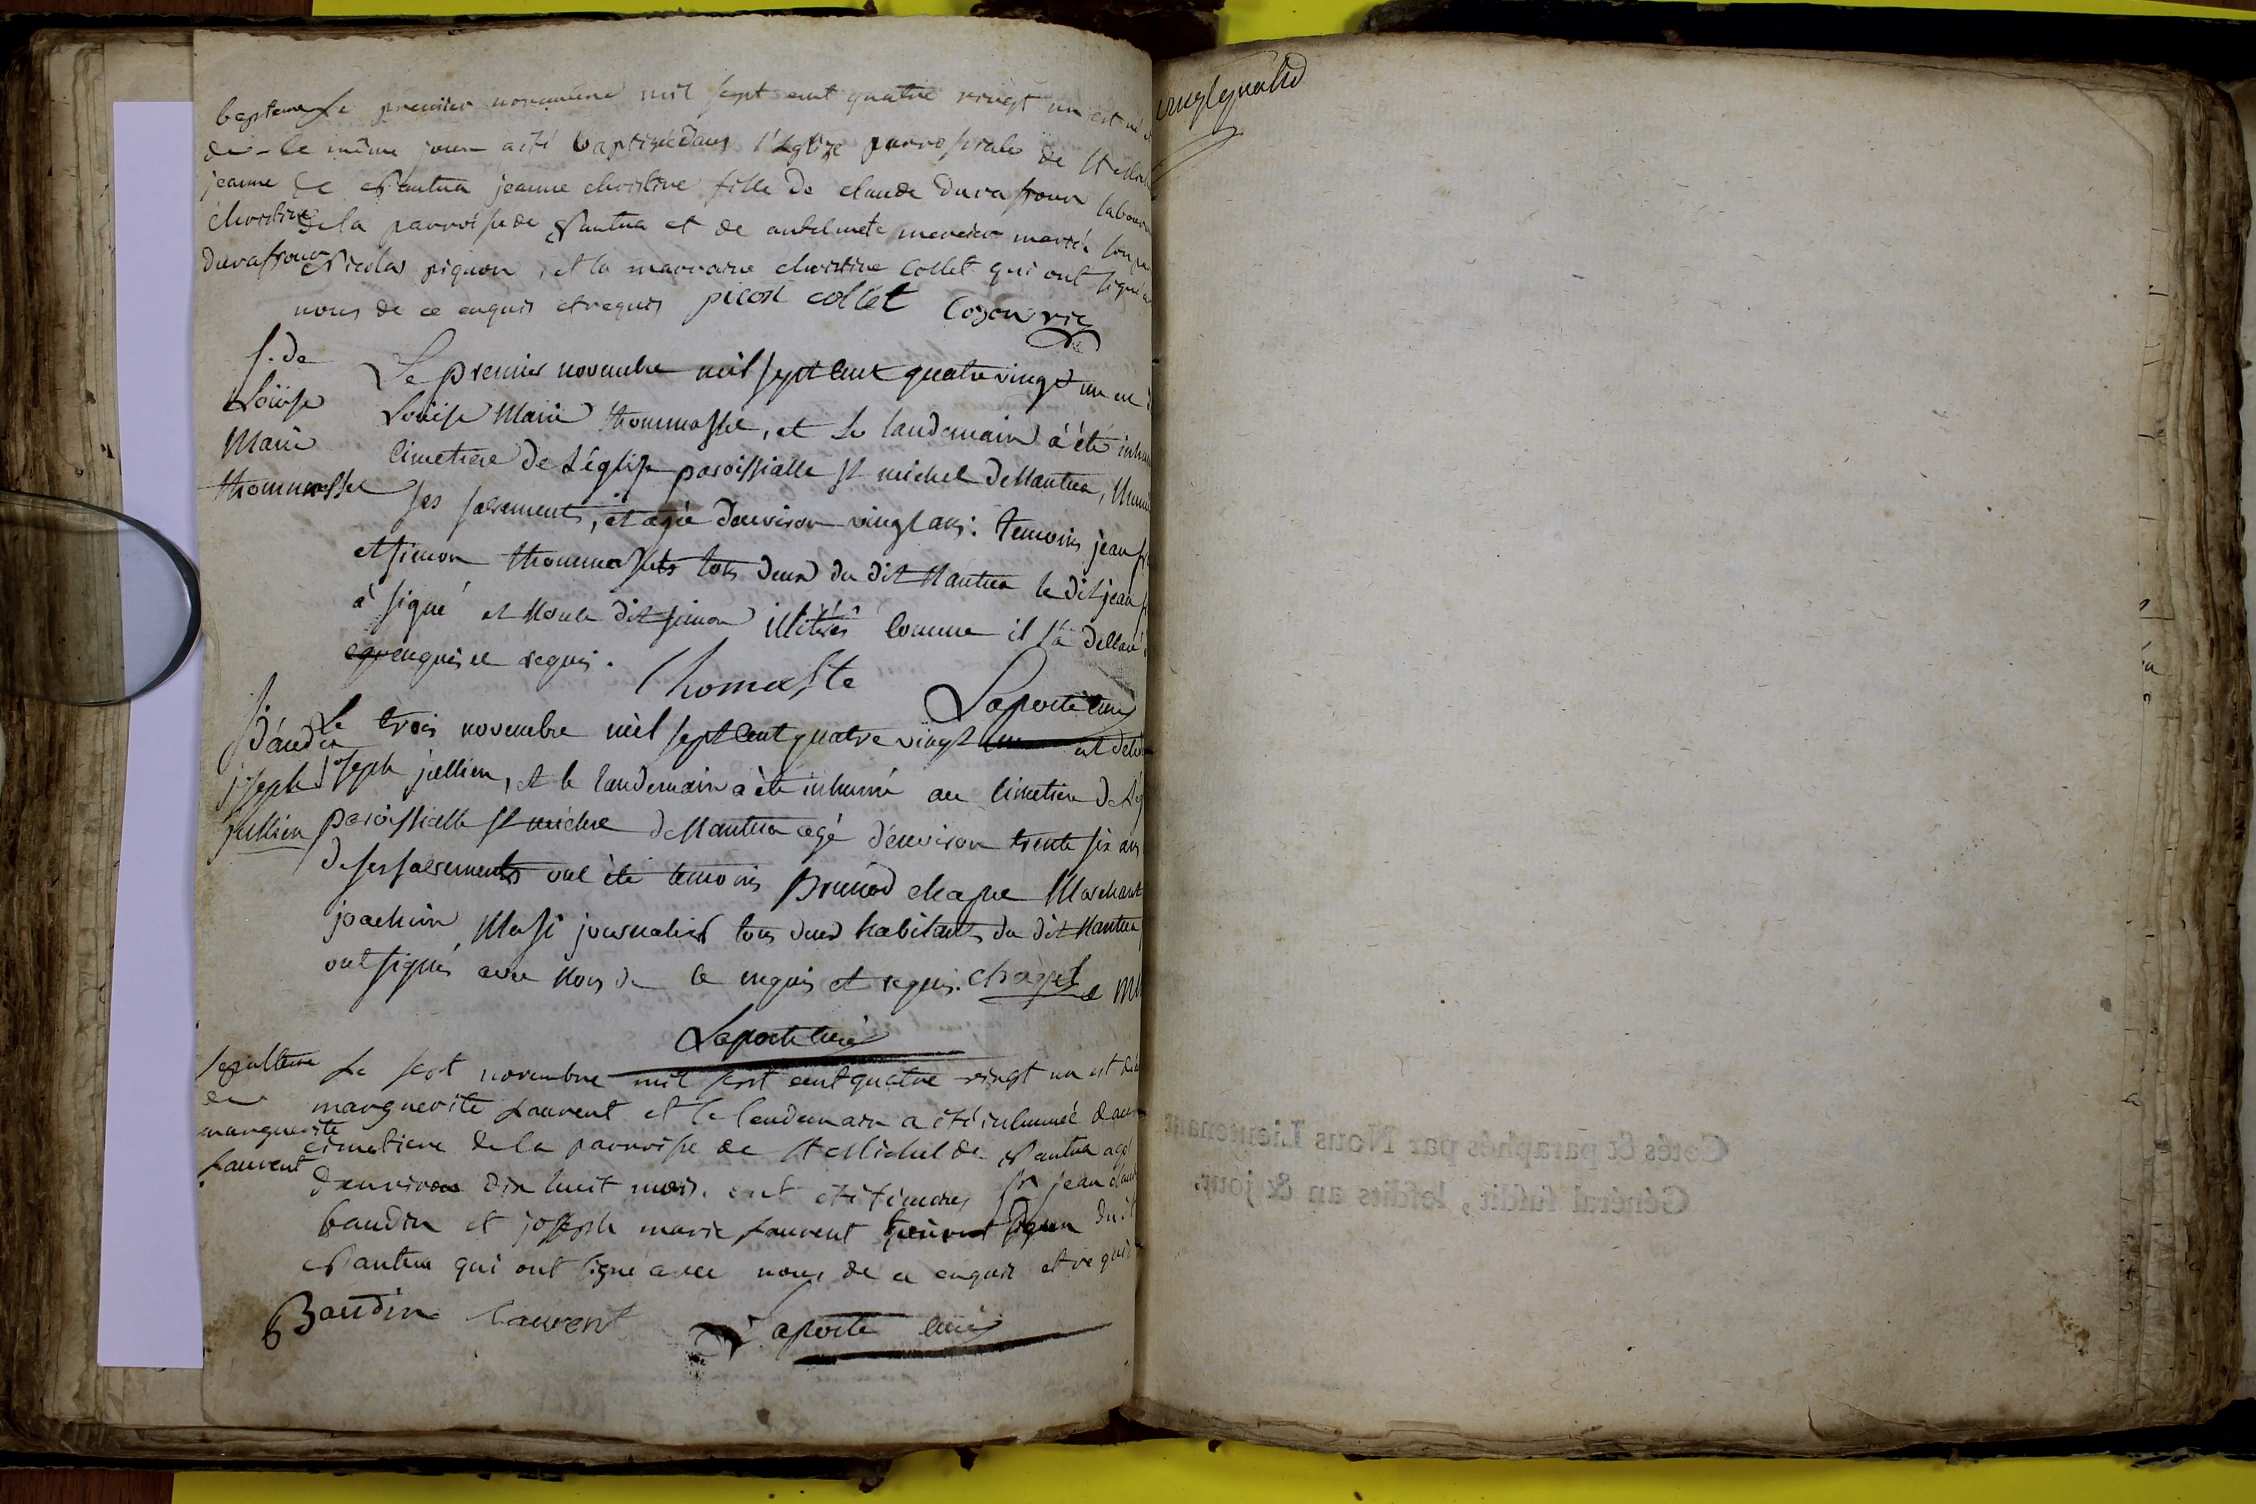 bapteme Le premier novembre mil sept cent quatre vingt un est né
de le même jour a été baptisée dans l'Eglise parroissiale de St Michel
jeanne de Nantua jeanne christine fille de claude Durafour
christine de la parroisse de Nantua et de antelmete mercier mariés
durafour Nicolas piquon, et la marraine christine Collet qui ont signé
nous de ce enquis et requis picon collet Cozon vic
s. de Le premier novembre mil sept cent quatre vingt un
Loüise Loüise Marie Thommasset, et Le landemain à été
Marie Cimetiere de L'église paroissialle St michel de Nantua,
thommasset ses sacrements, et agée d'environ vingt ans: temoins jean
et simon thommassets tous deux du dit Nantua le dit jean
à signé et non le dit simon illitéré comme il l'a
enquis et requis. Thomaste
Laporte curé
s. Le trois novembre mil sept cent quatre vingt un est
Baudin
joseph joseph jullien, et le landemain a été inhumé au Cimetiere
jullien paroissialle St michel de Nantua agé d'environ trente six ans
de ses sacrements ont été temoins Brunod chapel Marchant
joachim journalier tous deux habitants du dit Nantua
ont signés avec Nous de ce enquis et requis. chapel
Laporte curé
sepulture Le sept novembre mil sept cent quatre vingt un est
de marguerite Laurent et le lendemain a été inhumée dans
marguerite cimetiere de la parroisse de St Michel de Nantua
Laurent d'environ dix huit mois. ont été temoins Sr jean
baudin et joseph marie Laurent
Nantua qui ont signé avec nous de ce enquis et requis
Baudin Laurent Laporte curé
vingt quatre
Cotés & paraphés par Nous Lieutenant
Général susdit, lesdits an & jour.